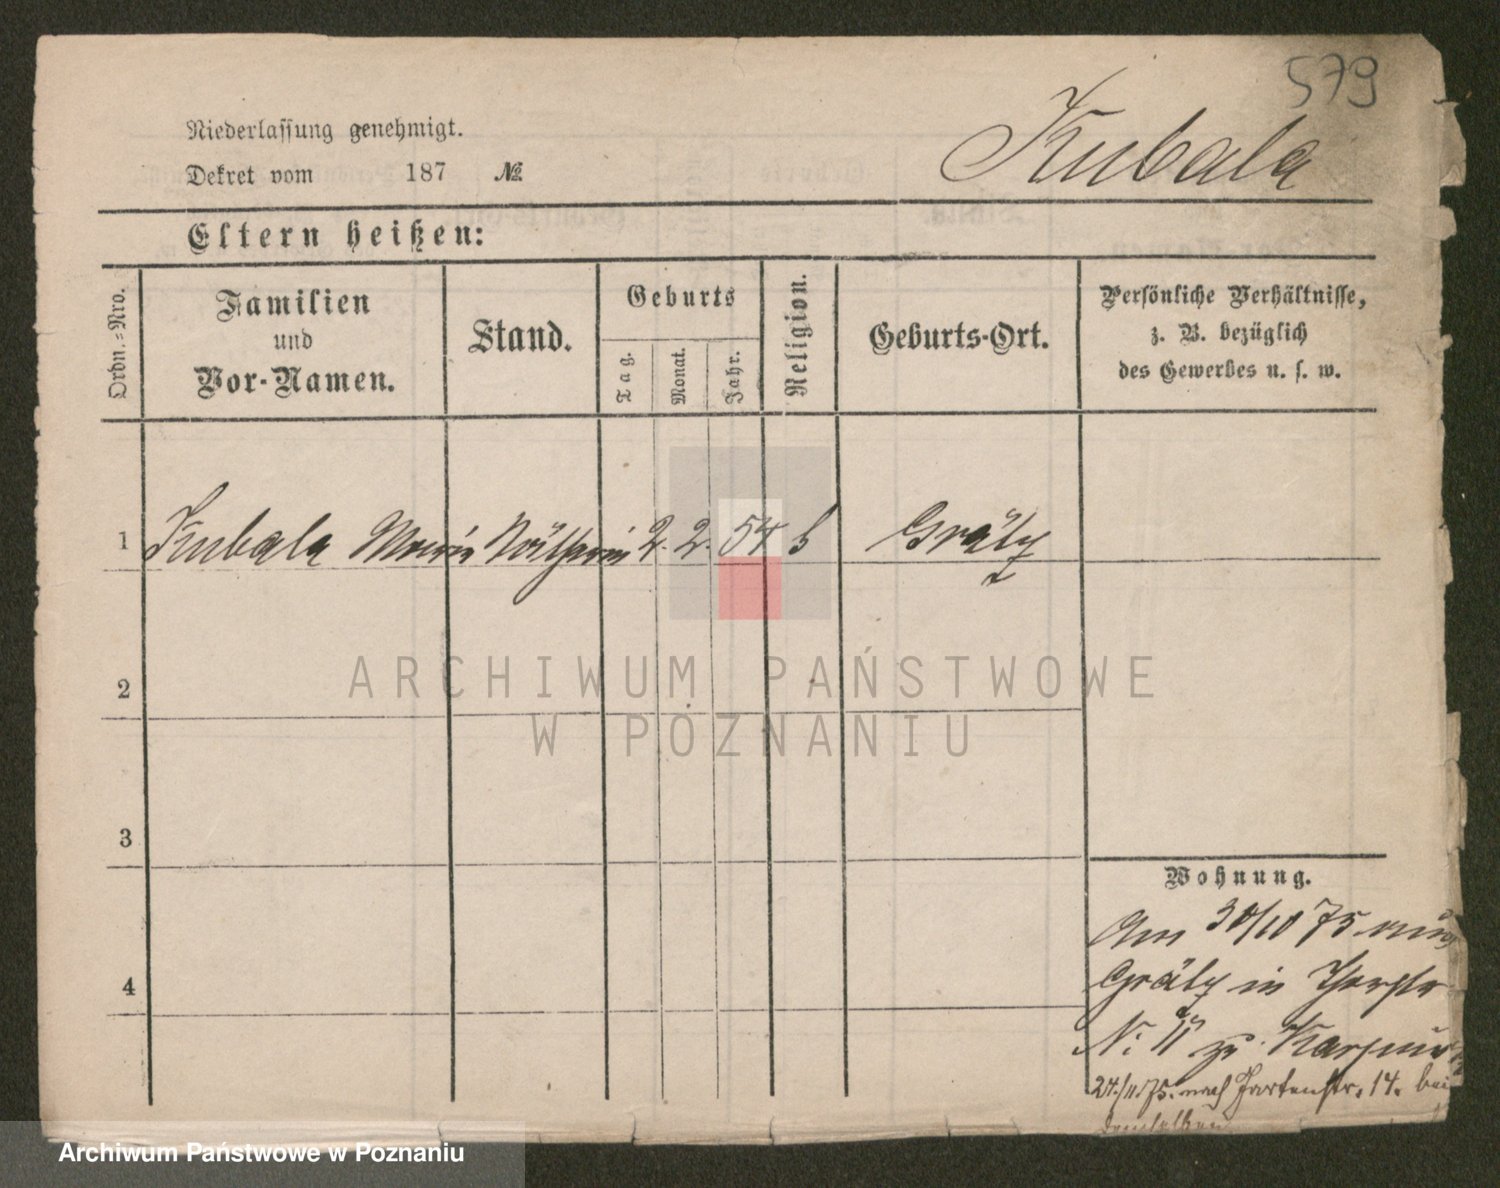 579
Kubala
Niederlassung genehmigt.
Dekret vom 187 №
Eltern heißen:
Ordn.=Nro.
Familien
und
Vor-Namen.
Stand.
Geburts
Tag.
Monat.
Jahr.
Religion.
Geburts-Ort.
Persönliche Verhältnisse,
z. B. bezüglich
des Gewerbes u. s. w.
1 Kubala Marie Nätherin 2. 2. 54 k Grätz
2
3
4
Wohnung.
Am 30/10 75 aus
Grätz in
No 11 zu
24/11 75. nach Gartenstr. 14. bei
demselben
ARCHIWUM PAŃSTWOWE
W POZNANIU
Archiwum Państwowe w Poznaniu